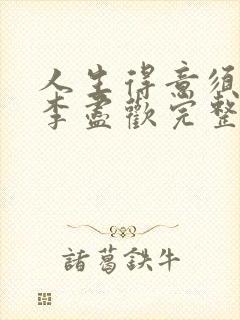 人生得意须
李盡歡完整
諸葛鉄牛